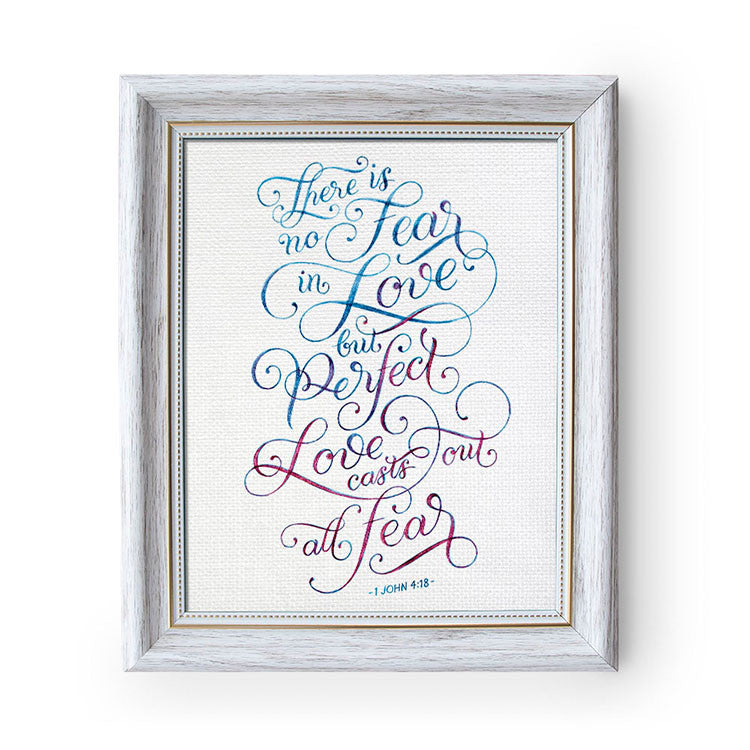 There is
no Fear
in Love
but
Perfect
Love
casts out
all Fear
- 1 JOHN 4:18 -